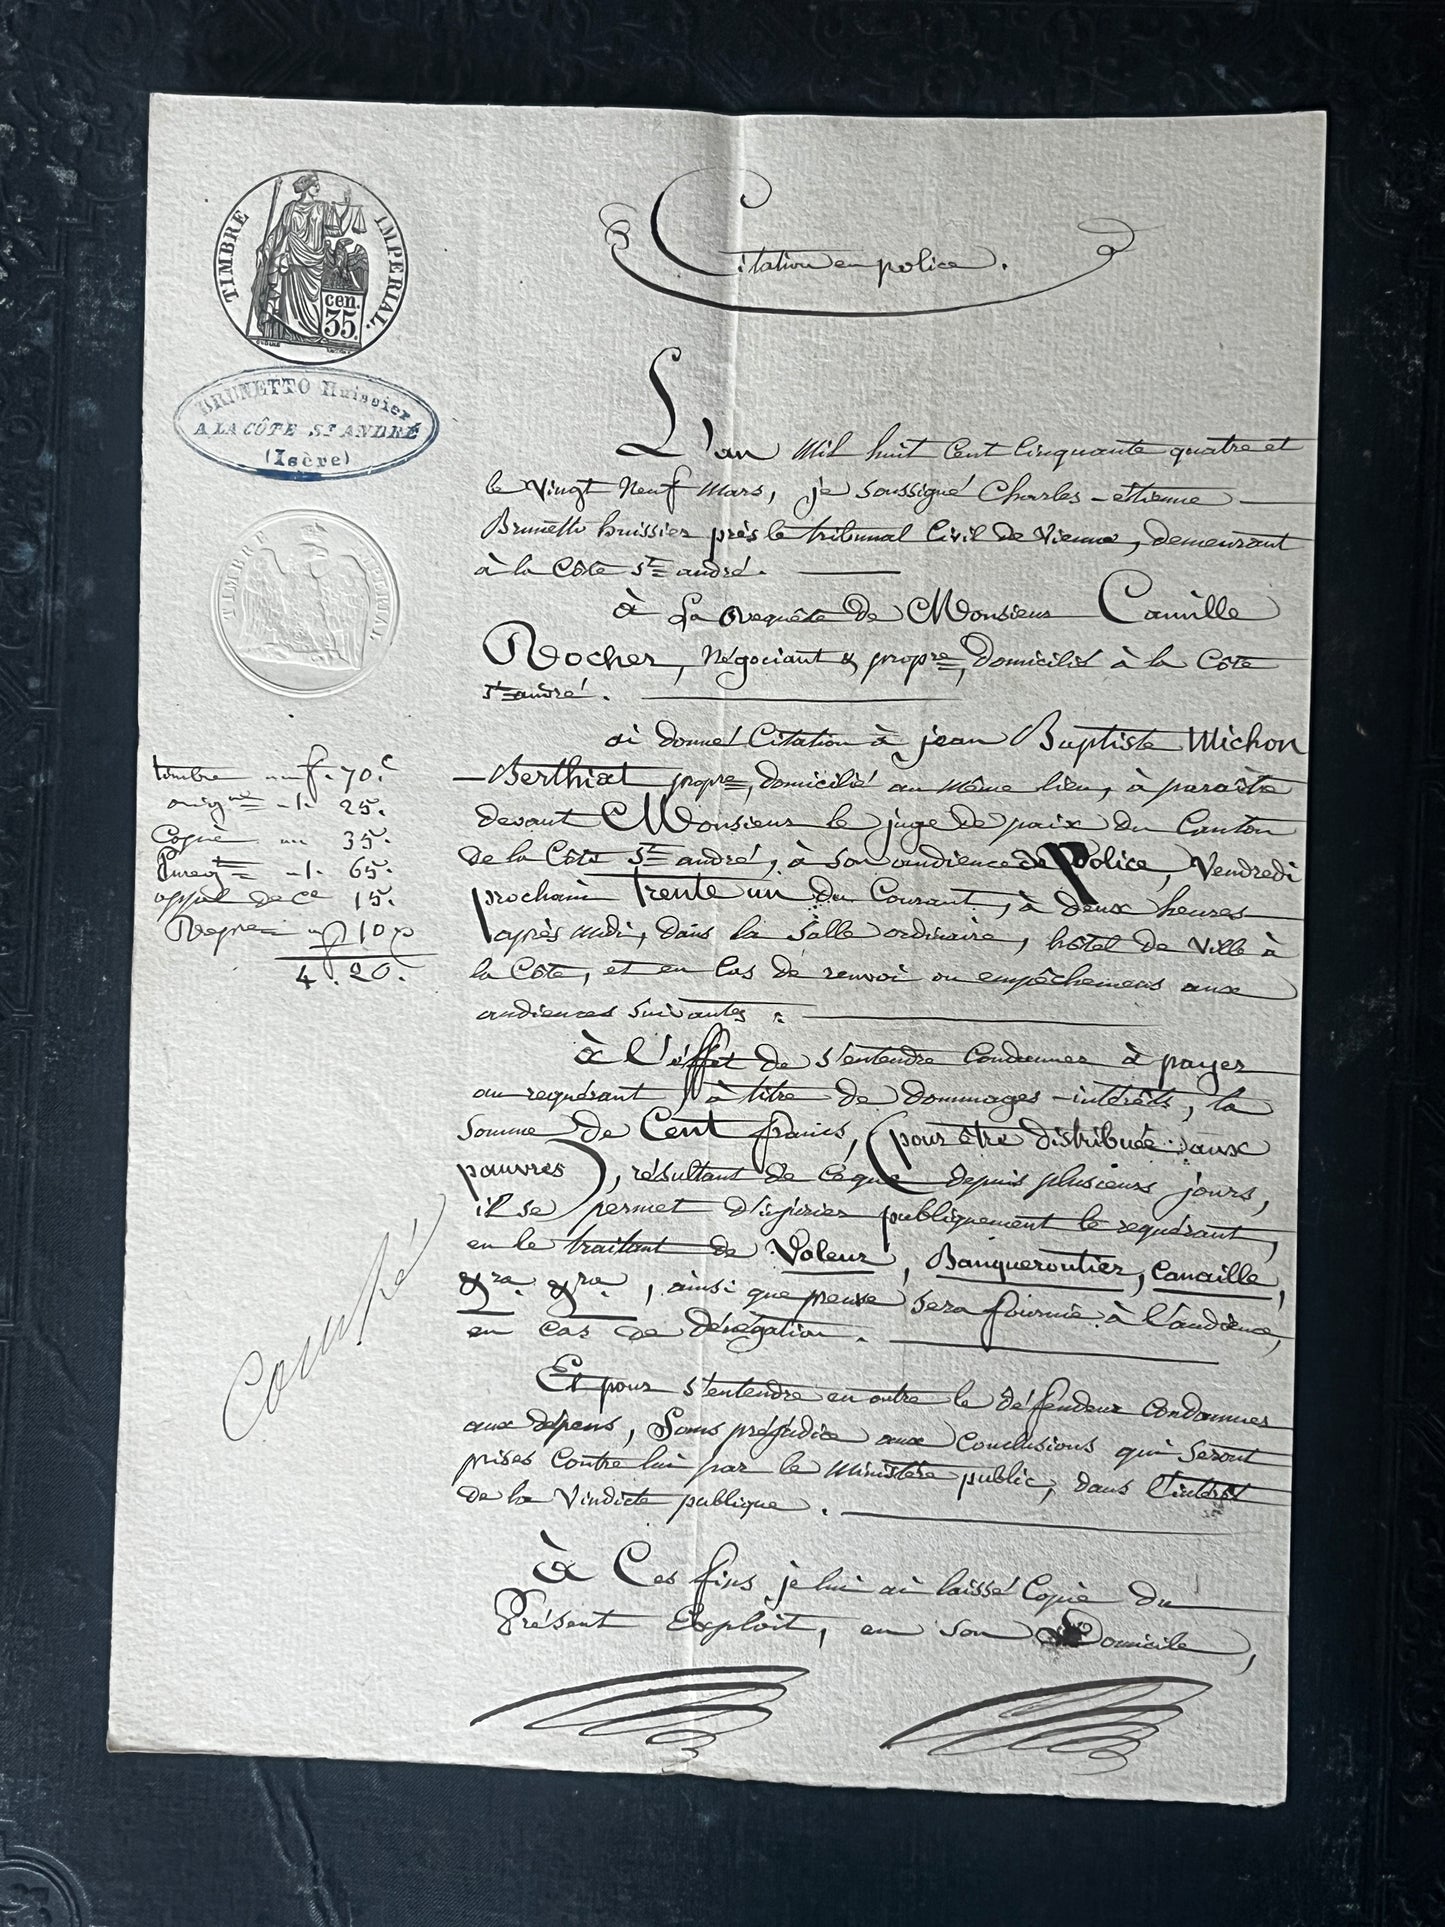 TIMBRE IMPERIAL.
cen.
35.
BRUNETTO Huissier
A LA CÔTE St ANDRÉ
(Isère)
TIMBRE IMPERIAL
Citation en police.
L'an mil huit cent cinquante quatre et
le vingt neuf mars, je soussigné Charles-ettienne
Brunetto huissier près le tribunal civil de Vienne, demeurant
à la Côte st andré.
à La Requête de Monsieur Camille
Rocher, négociant & propre, domicilié à la Côte
st andré.
ai donné Citation à jean Baptiste Michon
-Berthiat propre, domicilié au même lieu, à paraître
devant Monsieur le juge de paix du Canton
de la Côte St andré, à son audience de Police, Vendredi
prochain trente un du Courant, à deux heures
après midi, dans la salle ordinaire, hôtel de ville à
la Côte, et en cas de renvoi ou empêchemens aux
audiences suivantes :
à l'éffet de s'entendre condamner à payer
au requérant, à titre de dommages-intérêts, la
somme de Cent francs, (pour être distribuée aux
pauvres), résultant de ce que depuis plusieurs jours,
il se permet d'injurier publiquement le requérant,
en le traitant de Voleur, Banqueroutier, Canaille,
&ra. &ra., ainsi que preuve sera fournie à l'audience,
en cas de dénégation.
Et pour s'entendre en outre le défendeur condamner
aux dépens, Sans préjudice aux Conclusions qui seront
prises contre lui par le ministère public, dans l'intérêt
de la Vindicte publique.
à Ces fins je lui ai laissé Copie du
Présent Exploit, en son Domicile,
timbre f. 70.c
25.
Copie 35.
1. 65.
appel de ce 15.
10
4. 20.